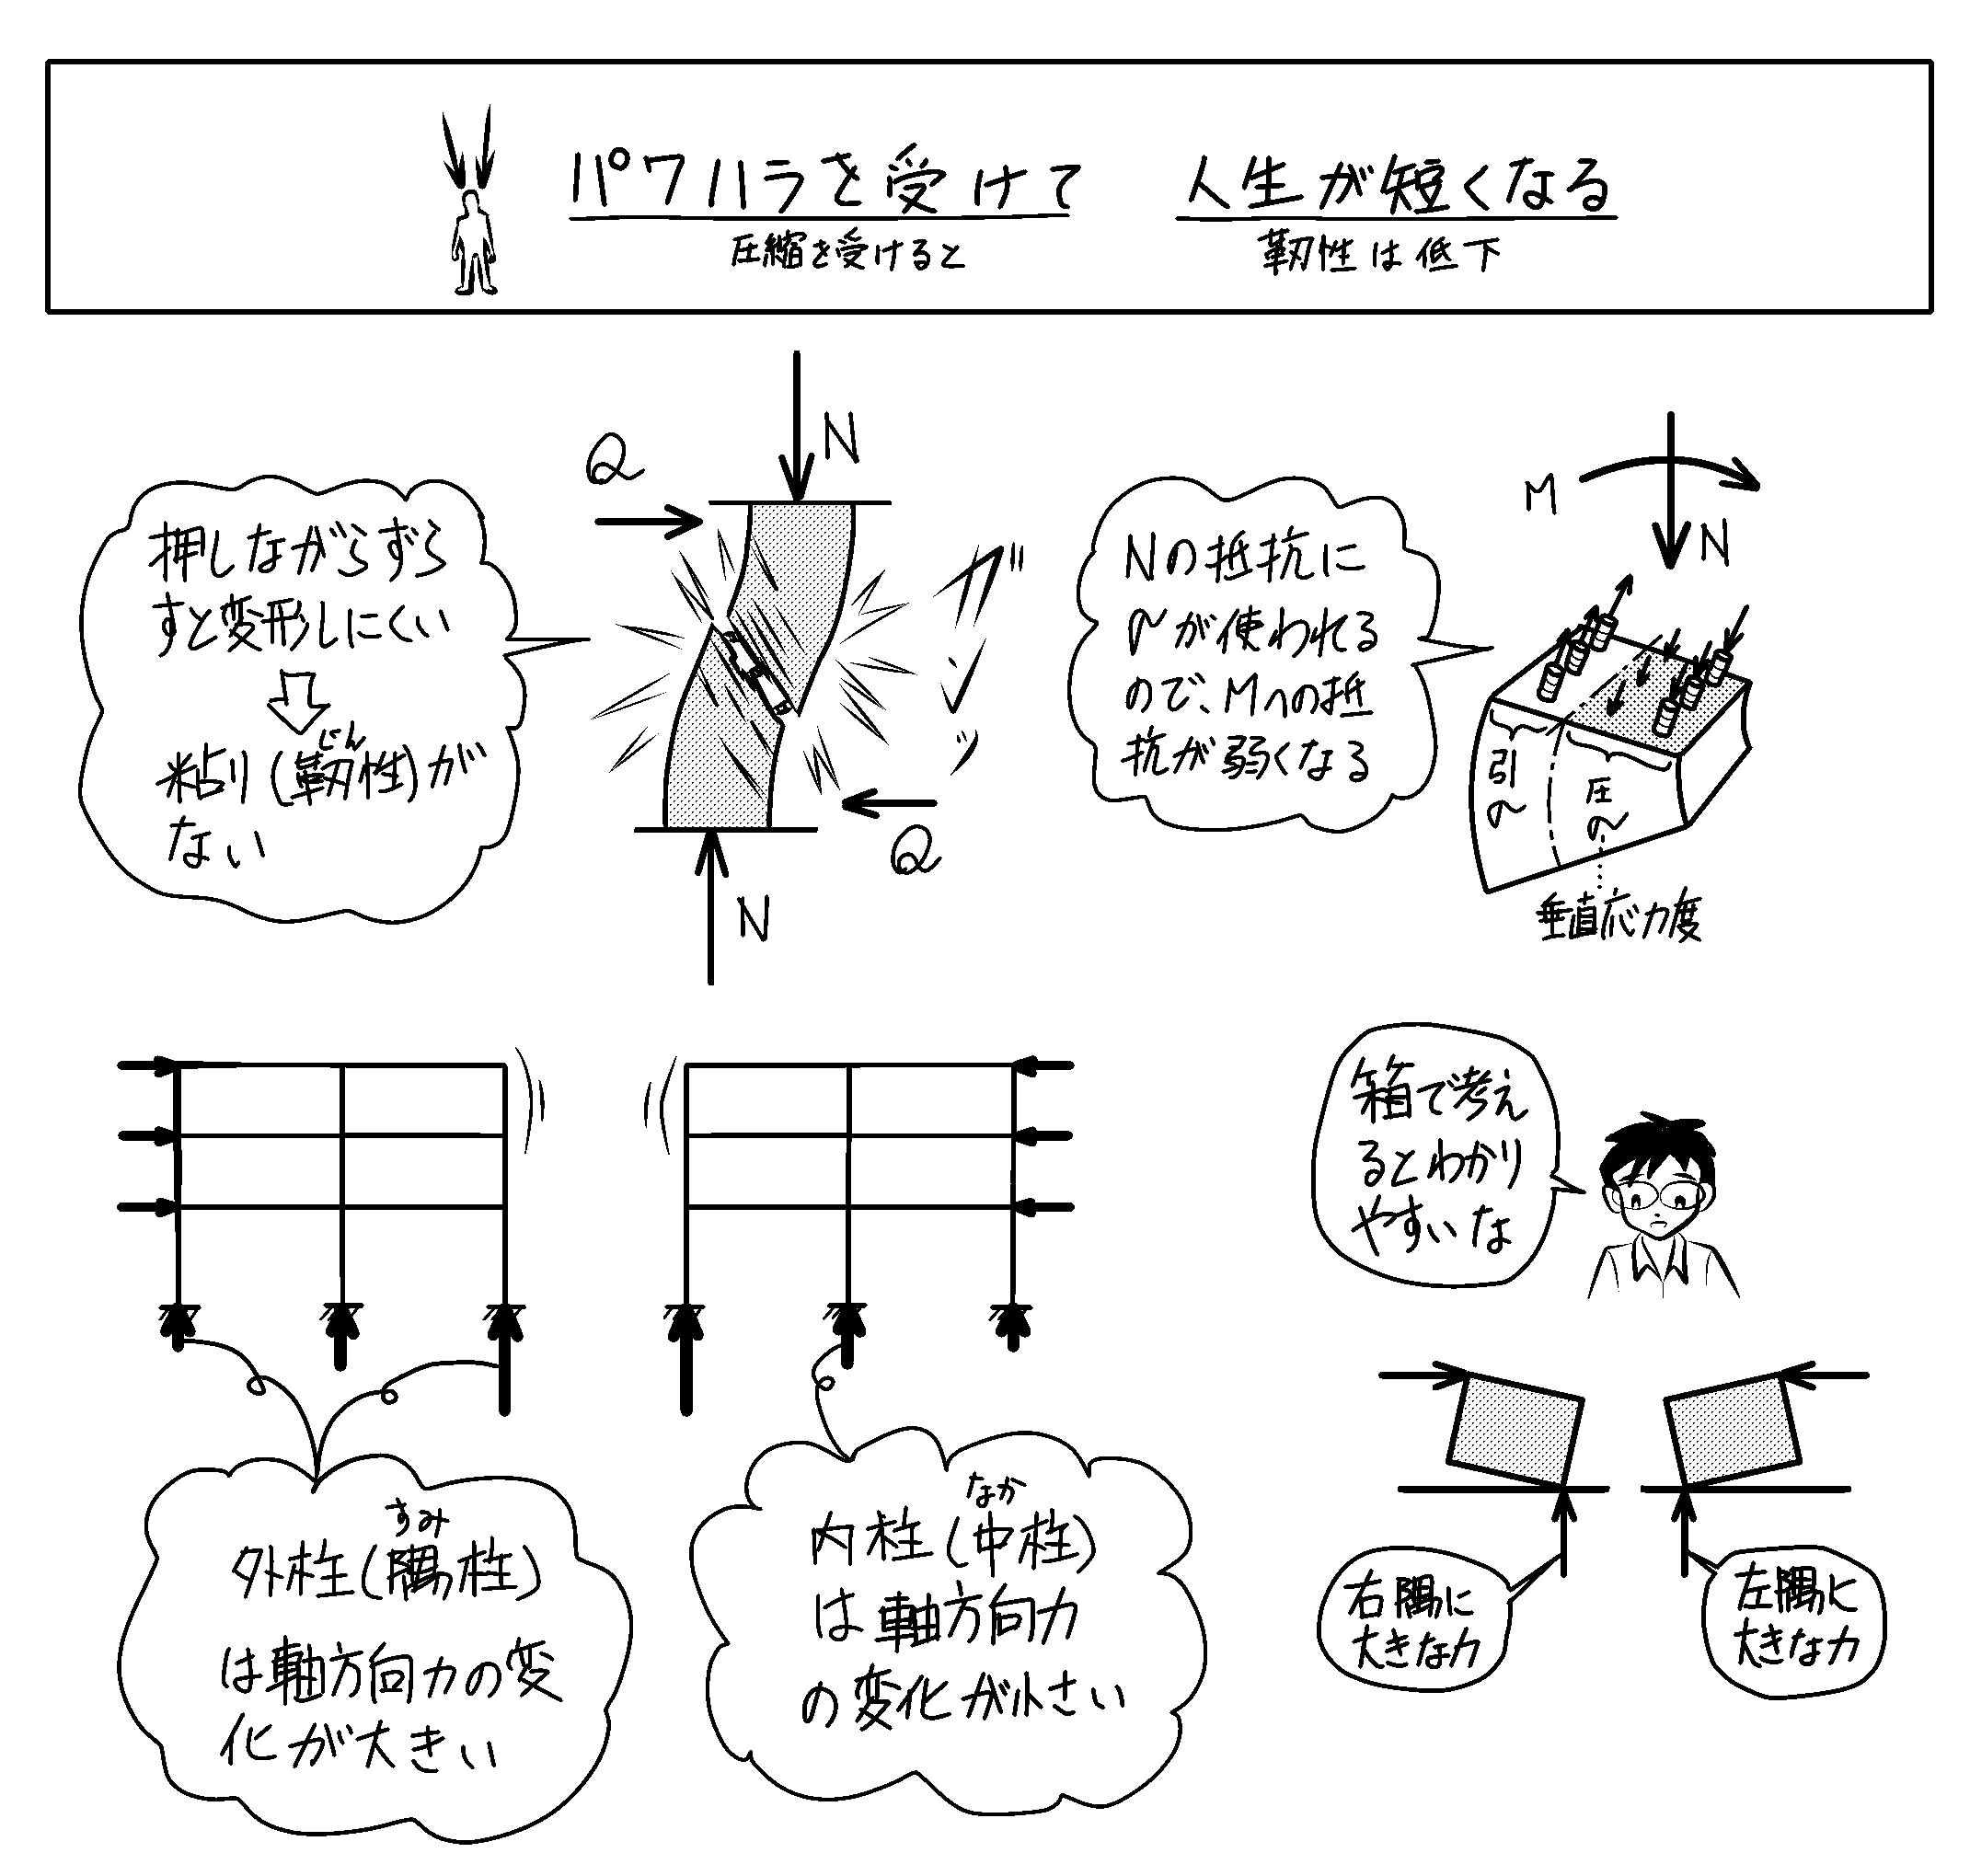 パワハラを受けて 人生が短くなる
圧縮を受けると 靭性は低下
N
Q
押しながらずら
すと変形しにくい
粘り(靭性)が
じん
ない
ガ
シ
ッ
Q
N
M
N
Nの抵抗に
σが使われる
ので、Mへの抵
抗が弱くなる
引
σ
圧
σ
垂直応力度
箱で考え
るとわかり
やすいな
すみ
外柱(隅柱)
は軸方向力の変
化が大きい
なか
内柱(中柱)
は軸方向力
の変化が小さい
右隅に
大きな力
左隅に
大きな力